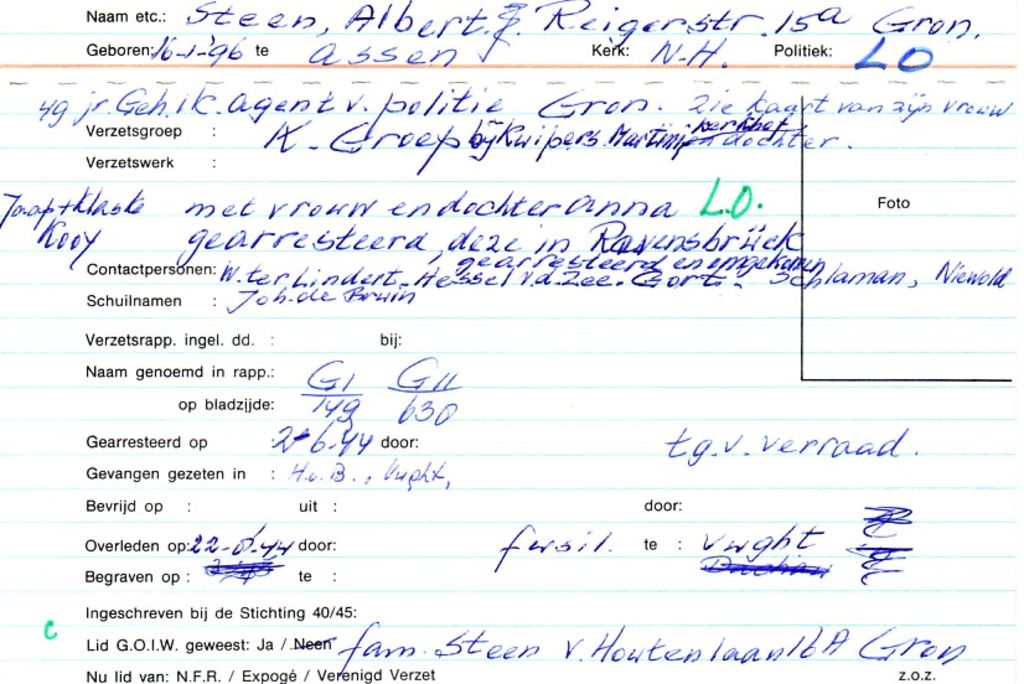 Naam etc.: Steen, Albert. J. Reigerstr. 15a Gron.
Geboren: 16-1-'96 te Assen Kerk: N-H. Politiek: LO
49 jr. Geh. k. agent v. politie Gron. zie kaart van zijn vrouw
Verzetsgroep : K. Groep bij Kuipers Martinikerkhof en dochter.
Verzetswerk :
Jaap + Klaske met vrouw en dochter Anna L.O. Foto
Kooy gearresteerd, deze in Ravensbrück
gearresteerd en omgekomen
Contactpersonen: W. ter Lindert. Hessel v.d. Zee. Gort. Schlaman, Niewold
Schuilnamen : Joh. de Bruin
Verzetsrapp. ingel. dd. : bij:
Naam genoemd in rapp.: GI GII
op bladzijde: 149 630
Gearresteerd op : 2-6.44 door: t.g.v. verraad.
Gevangen gezeten in : H.v.B., Vught,
Bevrijd op : uit : door:
Overleden op: 22-8-44 door: fusil. te : Vught
Begraven op : te :
Ingeschreven bij de Stichting 40/45:
c
Lid G.O.I.W. geweest: Ja / Neen fam. Steen v. Houtenlaan 16A Gron
Nu lid van: N.F.R. / Expogé / Verenigd Verzet z.o.z.